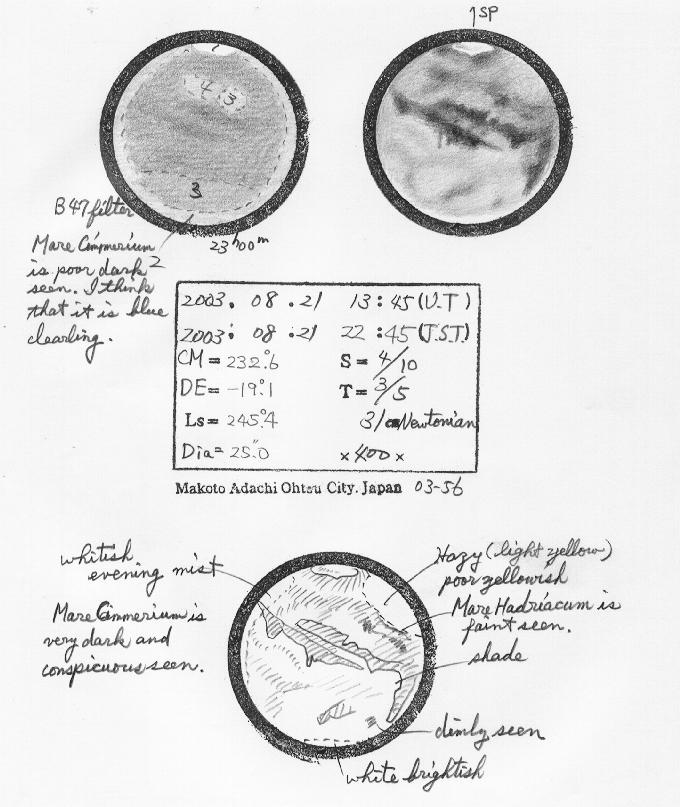 ↑SP
4
3
3
B47 filter
23ʰ00ᵐ
Mare Cimmerium
is poor dark
seen. I think
that it is blue
clearling.
2003. 08 .21 13:45(U.T)
2003: 08 :21 22:45(J.S.T)
CM= 232.°6 S= 4/10
DE= -19.°1 T= 3/5
Ls= 245.°4 31 Newtonian
Dia= 25."0 ×400×
Makoto Adachi Ohtsu City. Japan 03-56
whitish
evening mist
Hazy (light yellow)
poor yellowish
Mare Cimmerium is
very dark and
conspicuous seen.
Mare Hadriacum is
faint seen.
shade
dimly seen
white brightish